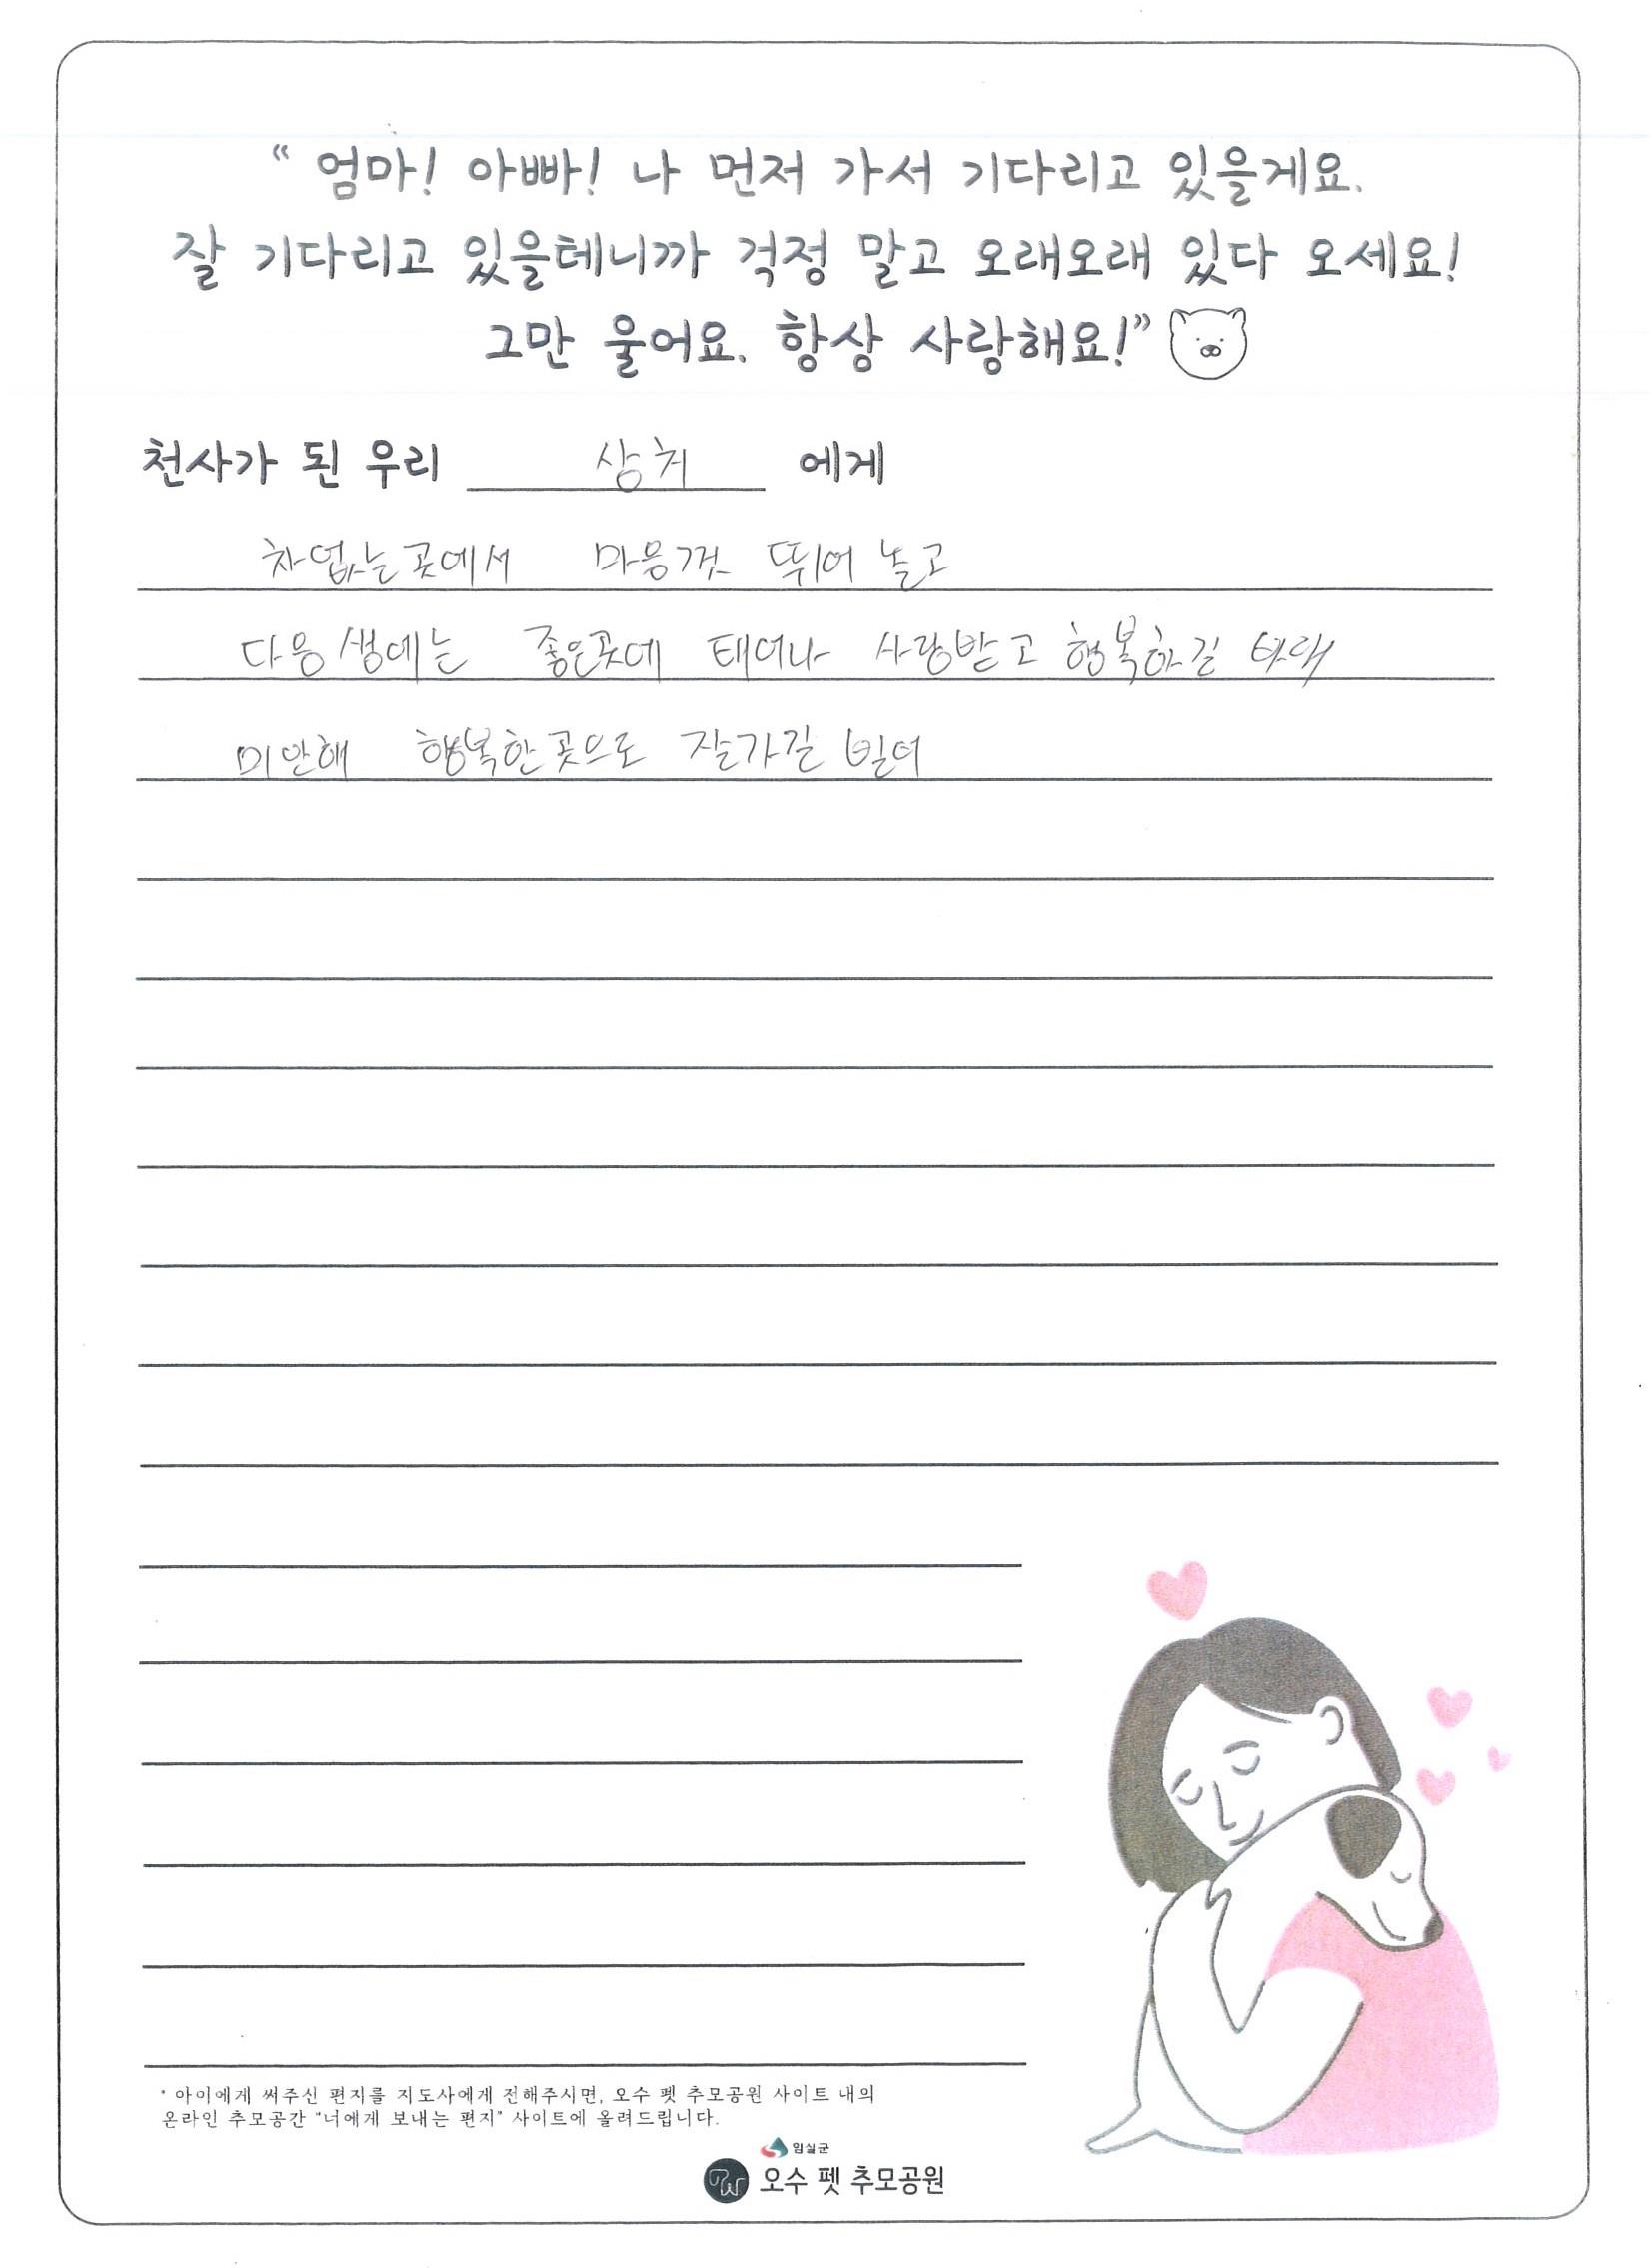 “ 엄마! 아빠! 나 먼저 가서 기다리고 있을게요.
잘 기다리고 있을테니까 걱정 말고 오래오래 있다 오세요!
그만 울어요. 항상 사랑해요!”
천사가 된 우리 상처 에게
차없는곳에서 마음껏 뛰어 놀고
다음생에는 좋은곳에 태어나 사랑받고 행복하길 바래
미안해 행복한곳으로 잘가길 빌어
* 아이에게 써주신 편지를 지도사에게 전해주시면, 오수 펫 추모공원 사이트 내의
온라인 추모공간 "너에게 보내는 편지" 사이트에 올려드립니다.
임실군
오수 펫 추모공원